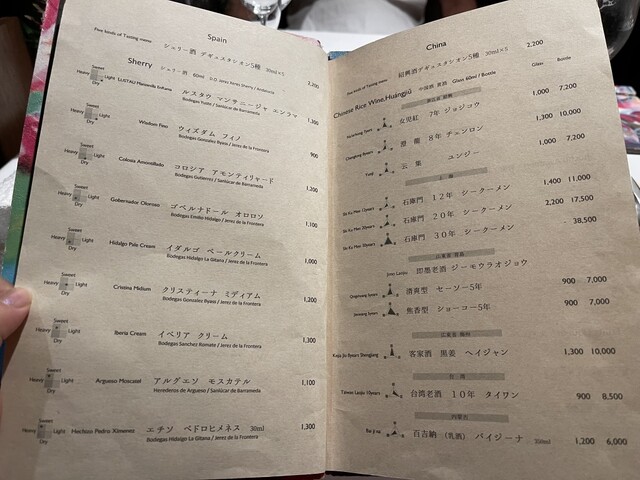 Spain
Five kinds of Tasting menu
シェリー酒 デギュスタシオン5種 30ml×5
2,200
Sherry シェリー酒 60ml D.O Jerez-Xeres-Sherry / Andalucia
Sweet
Heavy Light
Dry
LUSTAU Manzanilla
ルスタウ マンサニージャ エンラマ
1,300
Sweet
Heavy Light
Dry
Wisdom Fino
ウィズダム フィノ
Bodegas Gonzalez Byass / Jerez de la Frontera
900
Sweet
Heavy Light
Dry
Colosia Amontillado
コロシア アモンティリャード
Bodegas Gutierrez / Sanlúcar de Barrameda
1,200
Sweet
Heavy Light
Dry
Gobernador Oloroso
ゴベルナドール オロロソ
Bodegas Emilio Hidalgo / Jerez de la Frontera
1,100
Sweet
Heavy Light
Dry
Hidalgo Pale Cream
イダルゴ ペールクリーム
Bodegas Hidalgo La Gitana / Jerez de la Frontera
1,000
Sweet
Heavy Light
Dry
Cristina Medium
クリスティーナ ミディアム
Bodegas Gonzalez Byass / Jerez de la Frontera
1,200
Sweet
Heavy Light
Dry
Iberia Cream
イベリア クリーム
Bodegas Sanchez Romate / Jerez de la Frontera
1,300
Sweet
Heavy Light
Dry
Argueso Moscatel
アルグエソ モスカテル
Herederos de Argueso / Sanlúcar de Barrameda
1,100
Sweet
Heavy Light
Dry
Hechizo Pedro Ximenez
エチソ ペドロヒメネス 30ml
Bodegas Hidalgo La Gitana / Jerez de la Frontera
1,300
China
Five kinds of Tasting menu
紹興酒デギュスタシオン5種 30ml×5
2,200
Chinese Rice Wine,Huangjiu 中国酒 黄酒 Glass 60ml / Bottle
Glass Bottle
女児紅 7年 ジョジコウ 1,000 7,200
8年 チェンロン 1,300 10,000
云集 ユンジー 1,000 7,200
上海
石庫門 12年 シークーメン 1,400 11,000
石庫門 20年 シークーメン 2,200 17,500
石庫門 30年 シークーメン - 38,500
Jimo Laojiu 即墨老酒 ジーモウラオジョウ
清爽型 セーソー5年 900 7,000
焦香型 ショーコー5年 900 7,000
客家酒 黒姜 ヘイジャン 1,300 10,000
台湾
Taiwan Laojiu 10years 台湾老酒 10年 タイワン 900 8,500
内蒙古
Bai ji na 百吉納 (乳酒) バイジーナ 1,200 6,000